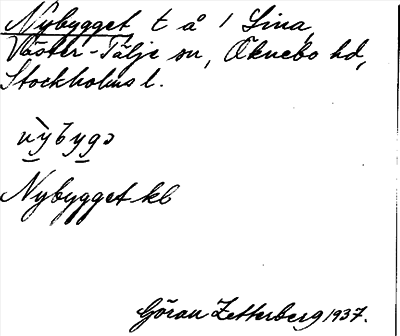 Nybygget t å 1 Lina,
Väster-Tälje sn, Öknebo hd,
Stockholms l.
Nybygget kb
Göran Zetterberg 1937.